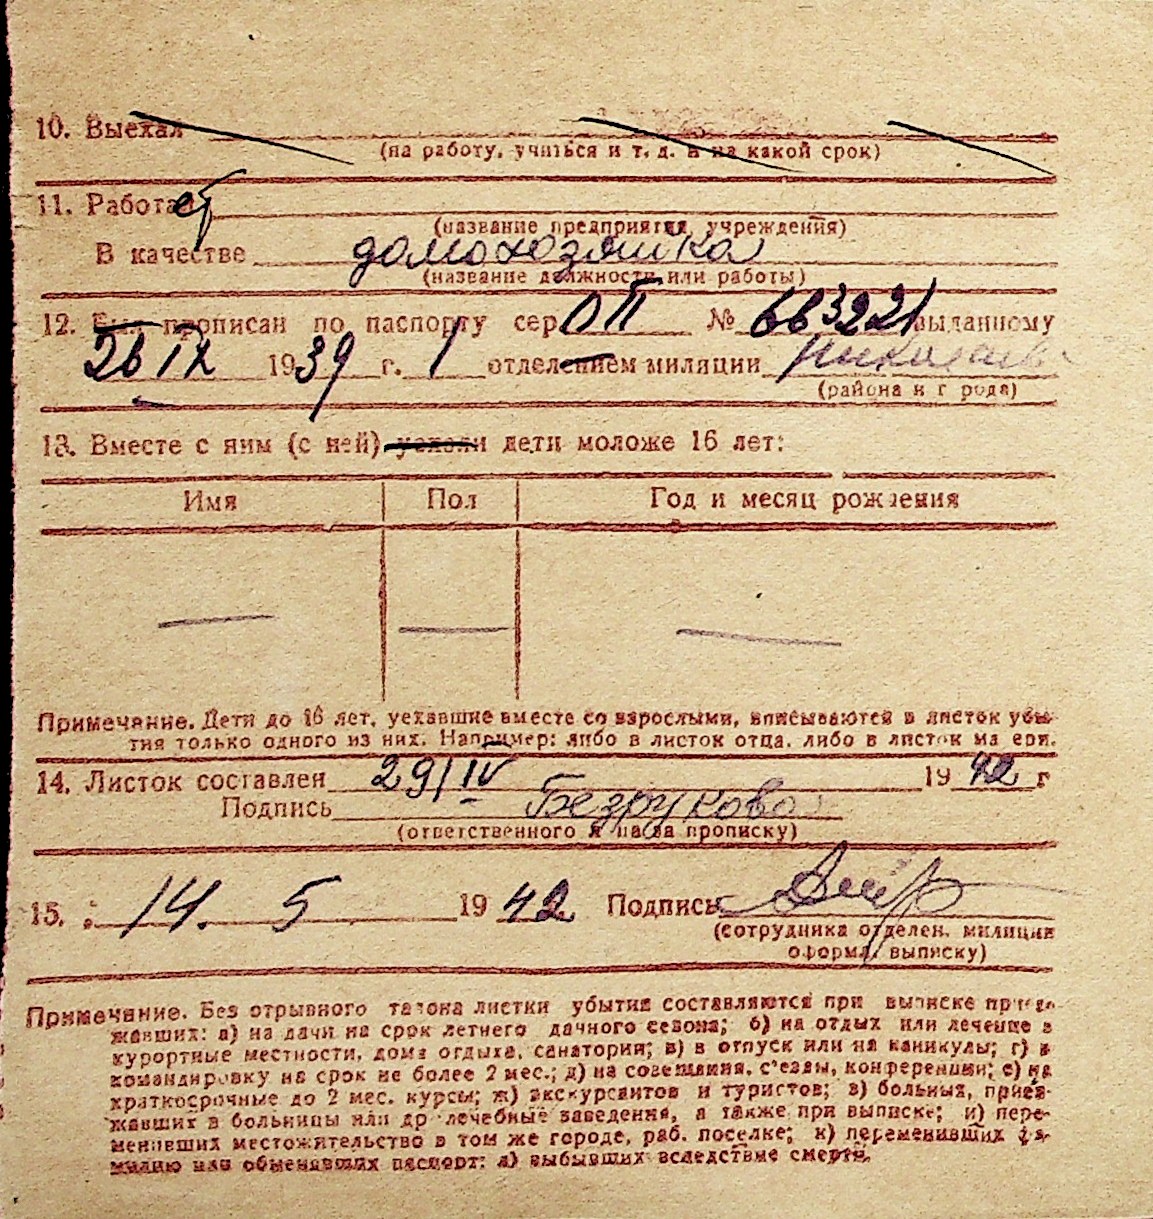 10. Выехал
(на работу, учиться и т. д. и на какой срок)
11. Работает
(название предприятия, учреждения)
В качестве домохозяйка
(название должности или работы)
12. Был прописан по паспорту сер. ОП № 663221 выданному
26 IX 1939 г. 1 отделением милиции
(района и города)
13. Вместе с ним (с ней) уехали дети моложе 16 лет:
Имя Пол Год и месяц рождения
— — —
Примечание. Дети до 16 лет, уехавшие вместе со взрослыми, вписываются в листок убы-
тия только одного из них. Например: либо в листок отца, либо в листок матери.
14. Листок составлен 29/IV 1942 г
Подпись Безрукова
(ответственного лица за прописку)
15. 14. 5 1942 Подпись
(сотрудника отделен. милиции
оформ. выписку)
Примечание. Без отрывного талона листки убытия составляются при выписке приез-
жавших: а) на дачи на срок летнего дачного сезона; б) на отдых или лечение в
курортные местности, дома отдыха, санатории; в) в отпуск или на каникулы; г) в
командировку на срок не более 2 мес.; д) на совещания, с'езды, конференции; е) на
краткосрочные до 2 мес. курсы; ж) экскурсантов и туристов; з) больных, приез-
жавших в больницы или др лечебные заведения, а также при выписке; и) пере-
менивших местожительство в том же городе, раб. поселке; к) переменивших фа-
милию или обменявших паспорт; л) выбывших вследствие смерти.